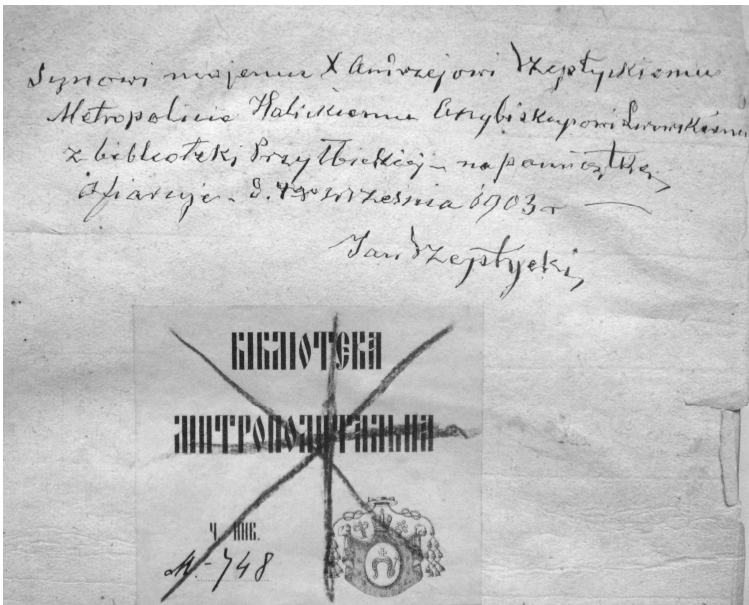 Synowi mojemu X Andrzejowi Szeptyckiemu
Metropolicie Halickiemu Arcybiskupowi Lwowskiemu
z biblioteki Przyłbickiej – na pamiątkę
ofiaruje – D. 4go września 1903 r
Jan Szeptycki
БІБЛІОТЕКА
МИТРОПОЛИТАЛЬНА
Ч. ИНВ.
М.-748